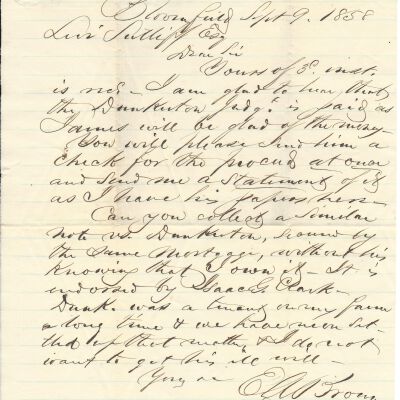 Bloomfield Sept 9. 1858
Levi Sutliff Esq
Dear Sir
Yours of 3d inst.
is recd - I am glad to hear that
the Dunkerton Judgt is paid as
James will be glad of the money -
You will please send him a
check for the proceeds at once
and send me a statement of it
as I have his papers here -
Can you collect a similar
note vs. Dunkerton, secured by
the same mortgage, without his
knowing that I own it - It is
endorsed by Isaac G. Clark -
Dunk. was a tenant on my farm
a long time & we have never set-
tled up that matter, & I do not
want to get his ill will -
Yours &c
E A Brown